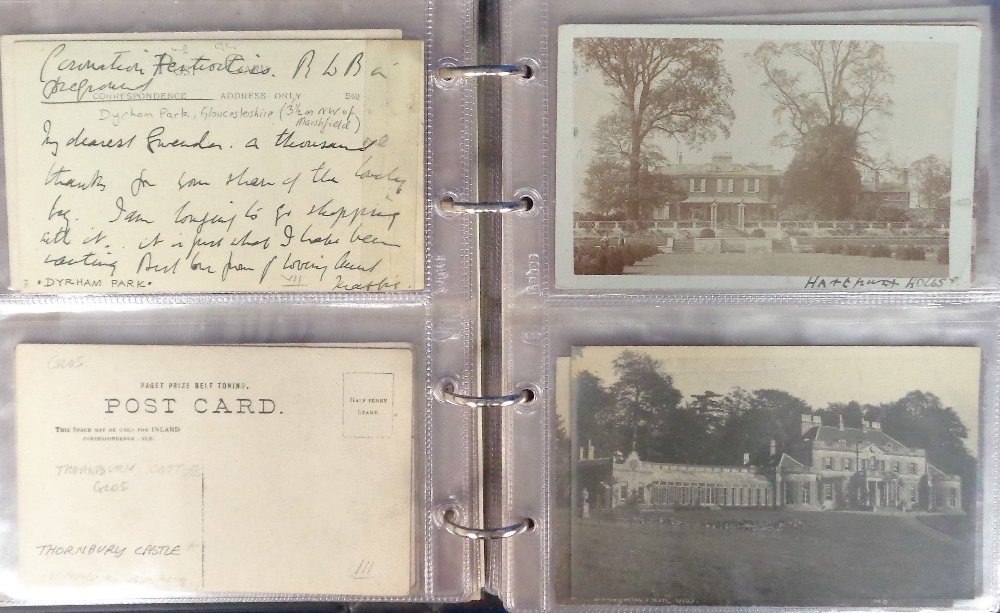 Coronation Festivities. R L B in
foreground
CORRESPONDENCE ADDRESS ONLY
Dyrham Park, Gloucestershire (3½ m NW of
Marshfield)
My dearest Gwenda. a thousand
thanks for your share of the lovely
bag. I am longing to go shopping
with it. it is just what I have been
wanting Best love from yr loving Aunt
• DYRHAM PARK •
VII
GLOS.
PAGET PRIZE SELF TONING.
POST CARD.
THIS SPACE MAY BE USED FOR INLAND
CORRESPONDENCE ONLY.
HALF PENNY
STAMP.
THORNBURY CASTLE
GLOS
THORNBURY CASTLE
III